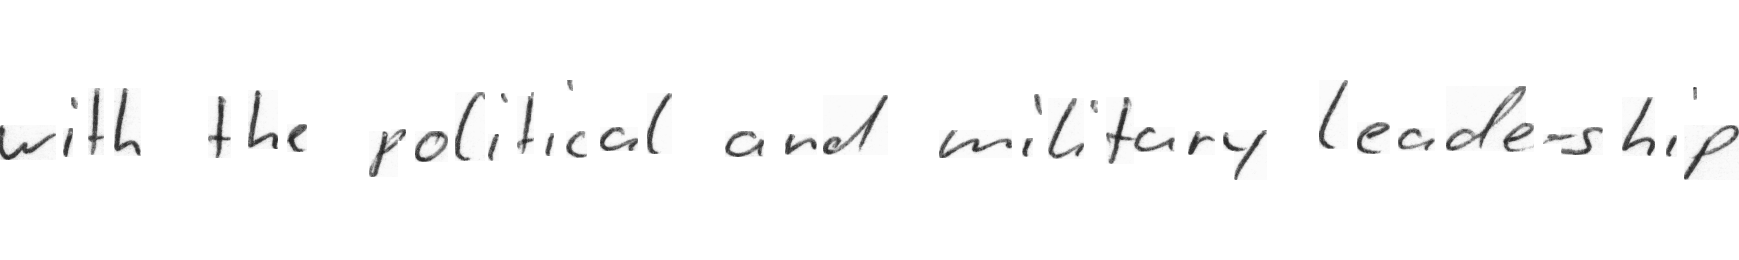 with the political and military leadership